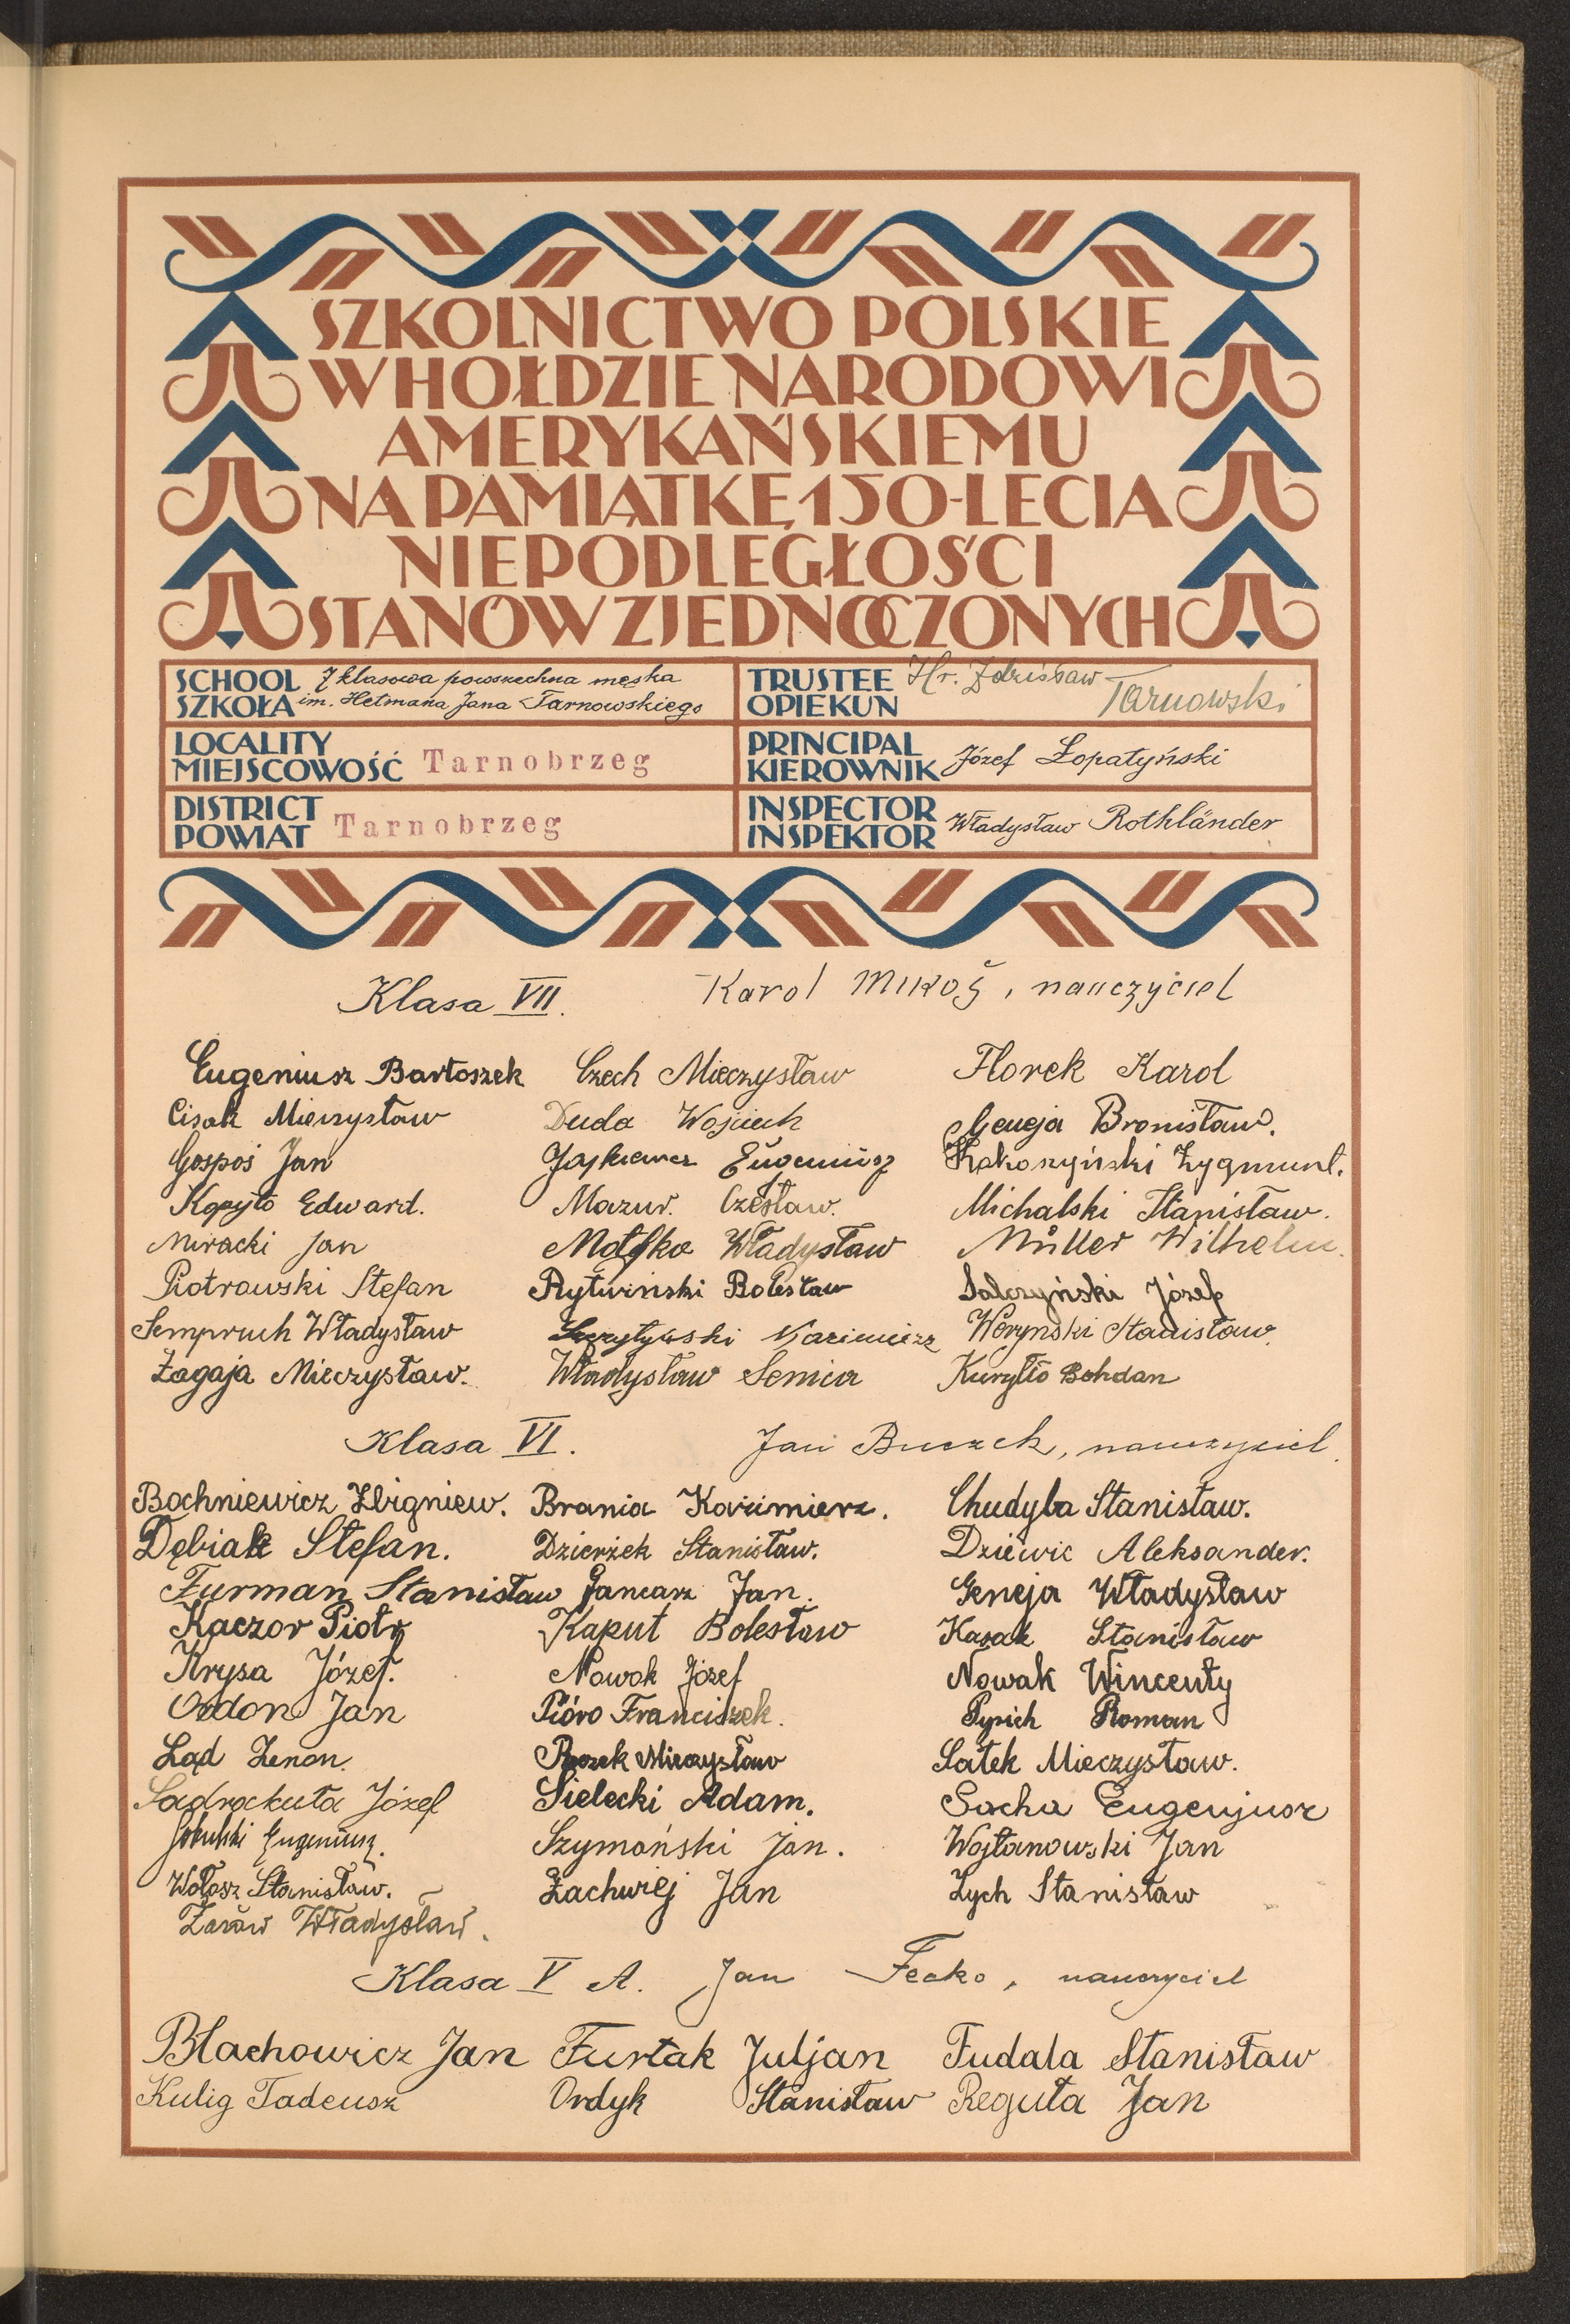 SZKOLNICTWO POLSKIE
W HOŁDZIE NARODOWI
AMERYKAŃSKIEMU
NA PAMIĄTKĘ 150-LECIA
NIEPODLEGŁOŚCI
STANÓW ZJEDNOCZONYCH
SCHOOL SZKOŁA 7 klasowa powszechna męska
im. Hetmana Jana Tarnowskiego
TRUSTEE OPIEKUN Hr. Zdzisław Tarnowski
LOCALITY MIEJSCOWOŚĆ Tarnobrzeg
PRINCIPAL KIEROWNIK Józef Łopatyński
DISTRICT POWIAT Tarnobrzeg
INSPECTOR INSPEKTOR Władysław Rothländer
Klasa VII. Karol Mikoś, nauczyciel
Eugeniusz Bartoszek Czech Mieczysław Florek Karol
Cisak Mieczysław Duda Wojciech Geneja Bronisław.
Gospoś Jan Eugeniusz Kokoszyński Zygmunt.
Kopyto Edward. Mazur. Czesław. Michalski Stanisław.
Miracki Jan Motyka Władysław Müller Wilhelm.
Piotrowski Stefan Rytwiński Bolesław Salczyński Józef
Sempruch Władysław Kazimierz Weryński Stanisław
Zagaja Mieczysław. Władysław Kuryłło Bohdan
Klasa VI. Jan Buczek, nauczyciel.
Bochniewicz Zbigniew. Brania Kazimierz. Chudyba Stanisław.
Dębiak Stefan. Dzierżek Stanisław. Dziewic Aleksander.
Furman Stanisław Gancarz Jan. Geneja Władysław
Kaczor Piotr Kaput Bolesław Kasak Stanisław
Krysa Józef. Nowak Józef Nowak Wincenty
Ordon Jan Pióro Franciszek. Pyrich Roman
Ląd Zenon. Rożek Mieczysław Sałek Mieczysław.
Sadrakuła Józef Sielecki Adam. Socha Eugenjusz
Sokulski Eugeniusz. Szymański Jan. Wojtanowski Jan
Wołosz Stanisław. Zachwiej Jan Zych Stanisław
Żaraw Władysław.
Klasa V A. Jan Fecko, nauczyciel
Blachowicz Jan Furtak Juljan Fudala Stanisław
Kulig Tadeusz Ordyk Stanisław Reguła Jan